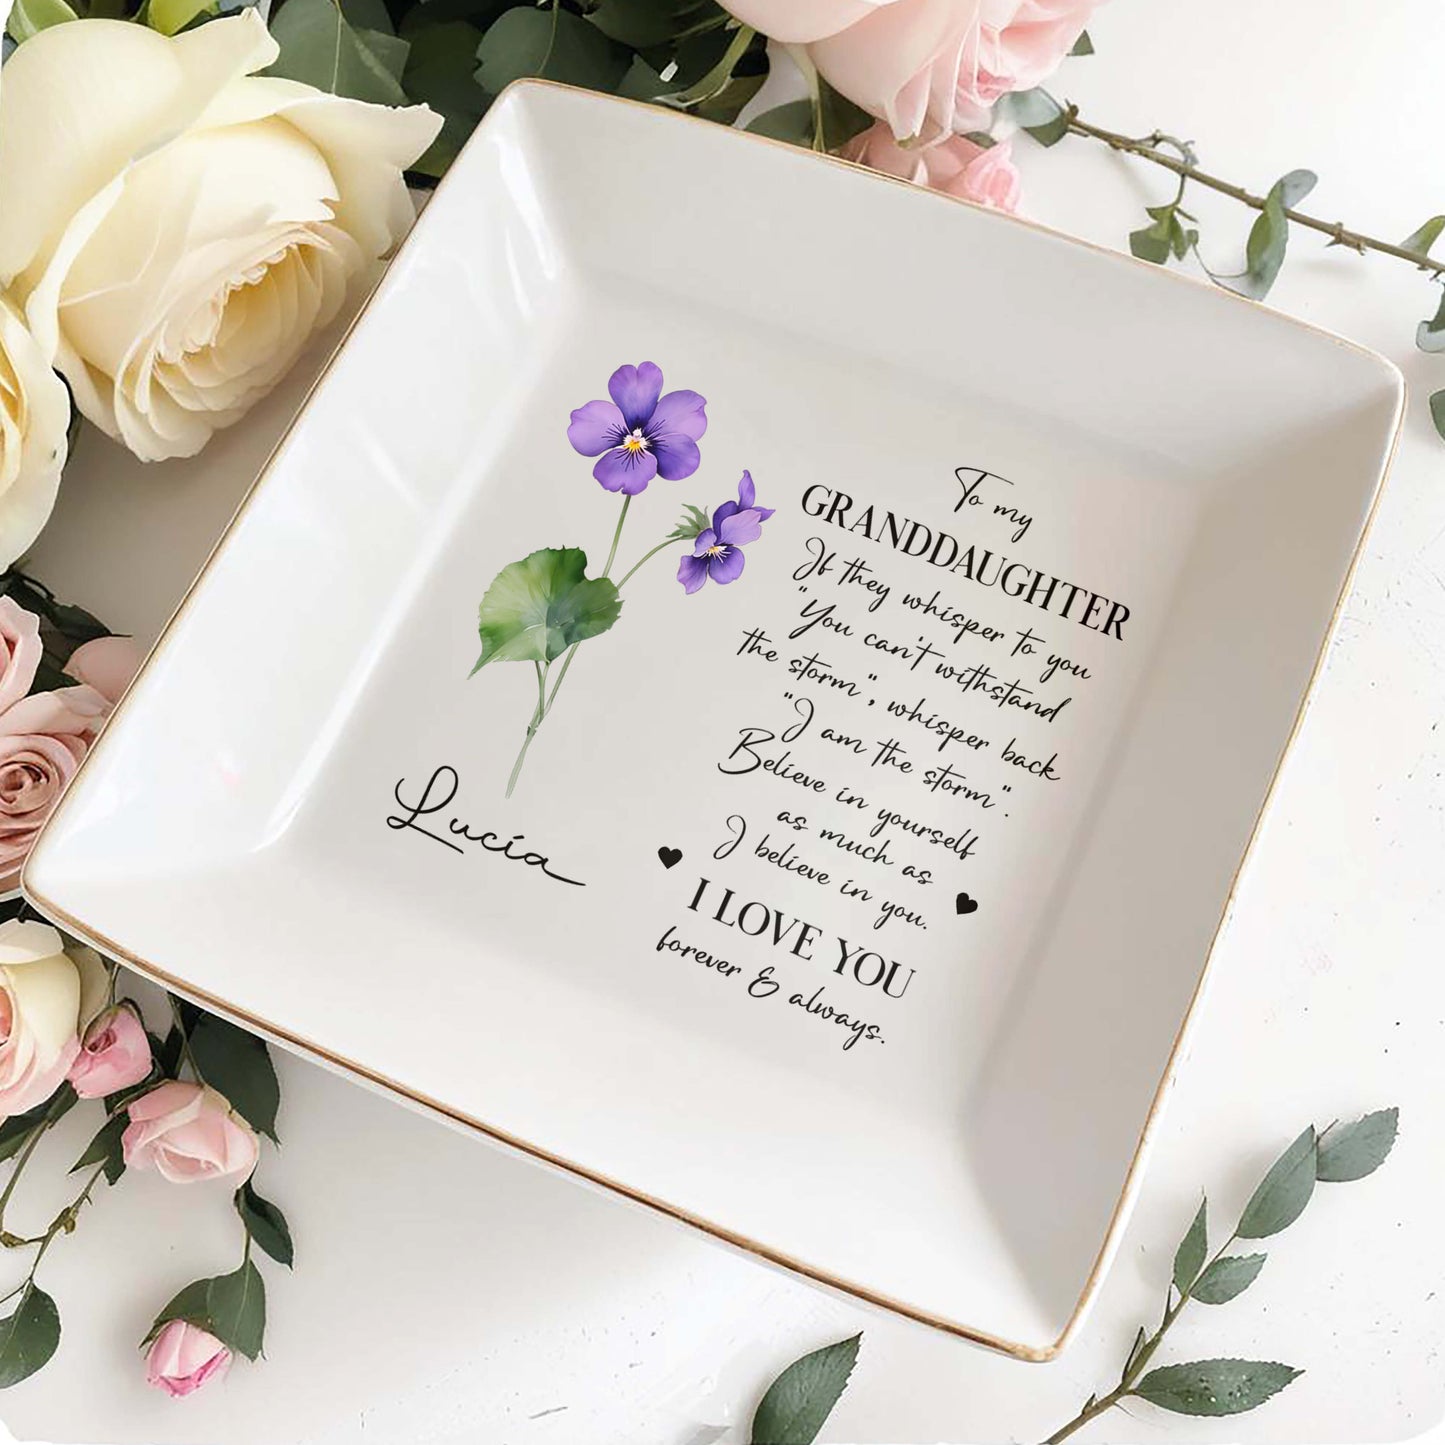 To my
GRANDDAUGHTER
If they whisper to you
"You can't withstand
the storm", whisper back
"I am the storm".
Believe in yourself
as much as
I believe in you.
I LOVE YOU
forever & always.
Lucía